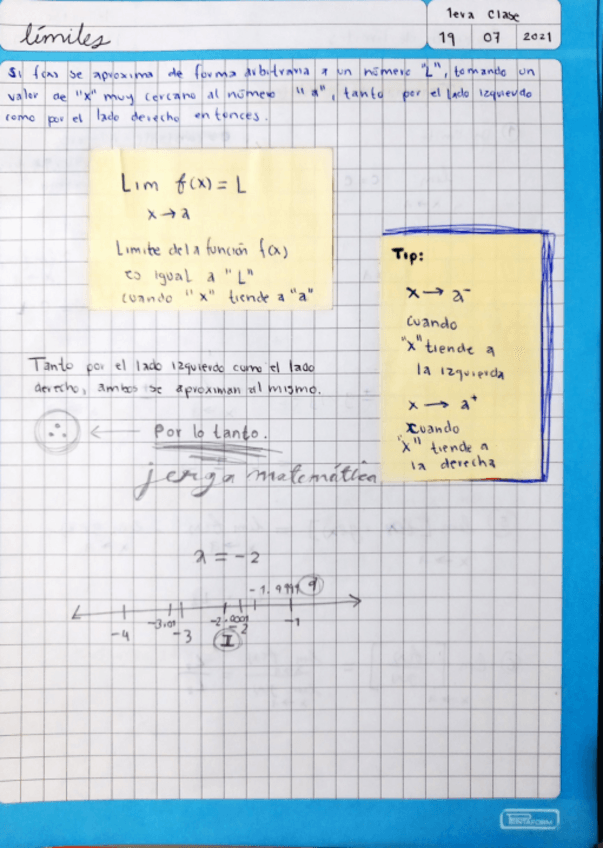 límites
1era clase
19 07 2021
Si f(x) se aproxima de forma arbitraria a un número "L", tomando un
valor de "x" muy cercano al número "a", tanto por el lado izquierdo
como por el lado derecho entonces.
Lim f(x) = L
x → a
Limite de la función f(x)
es igual a "L"
cuando "x" tiende a "a"
Tip:
x → a⁻
cuando
"x" tiende a
la izquierda
x → a⁺
cuando
"x" tiende a
la derecha
Tanto por el lado izquierdo como el lado
derecho, ambos se aproximan al mismo.
∴ ← Por lo tanto.
jerga matemática
a = -2
-1.9999 d
-4 -3.01 -3 -2.0001 -2 -1
I